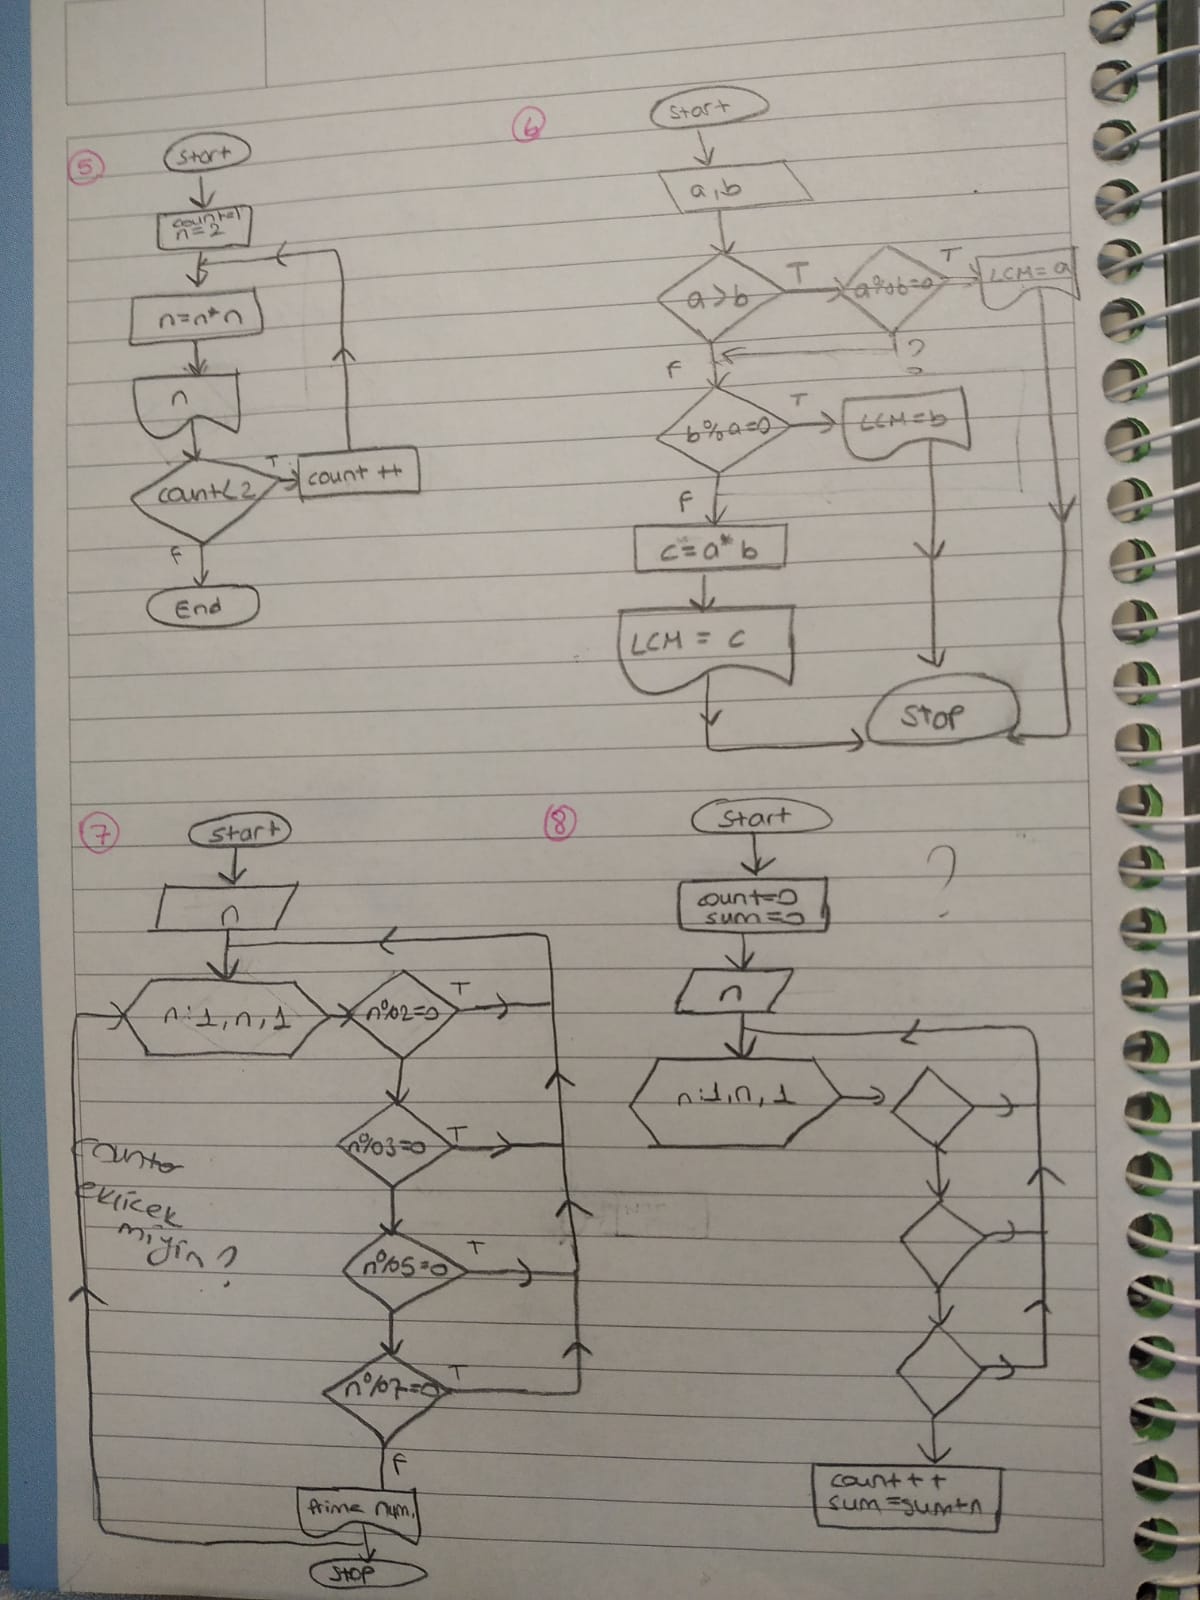 5
Start
count=1
n=2
n=n*n
n
count<2
T
count ++
F
End
6
Start
a,b
a>b
T
a%b=0
T
LCM=a
?
F
b%a=0
T
LCM=b
F
c=a*b
LCM = c
Stop
7
Start
n
n:1,n,1
n%2=0
T
n%3=0
T
n%5=0
T
n%7=0
T
F
Prime num.
Stop
eklicek
miyin?
8
Start
?
count=0
sum=0
n
n:1,n,1
count++
sum=sum+n